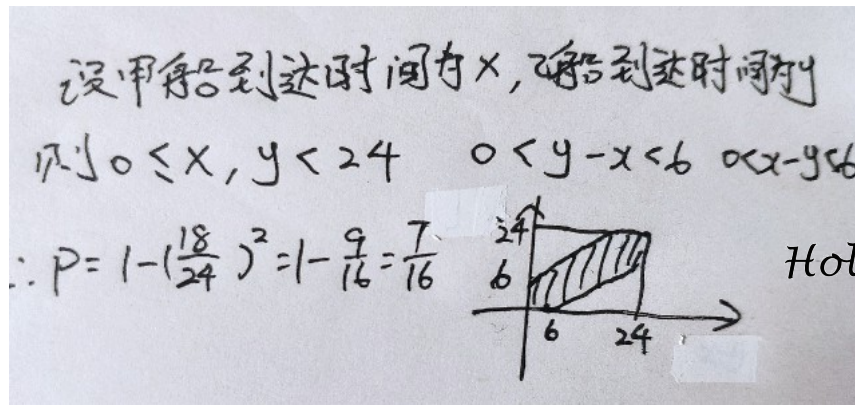 设甲船到达时间为x,乙船到达时间为y
则0≤x,y<24 0<y-x<6 0<x-y≤6
∴P=1-(18/24)²=1-9/16=7/16
24
6
6
24
Hol